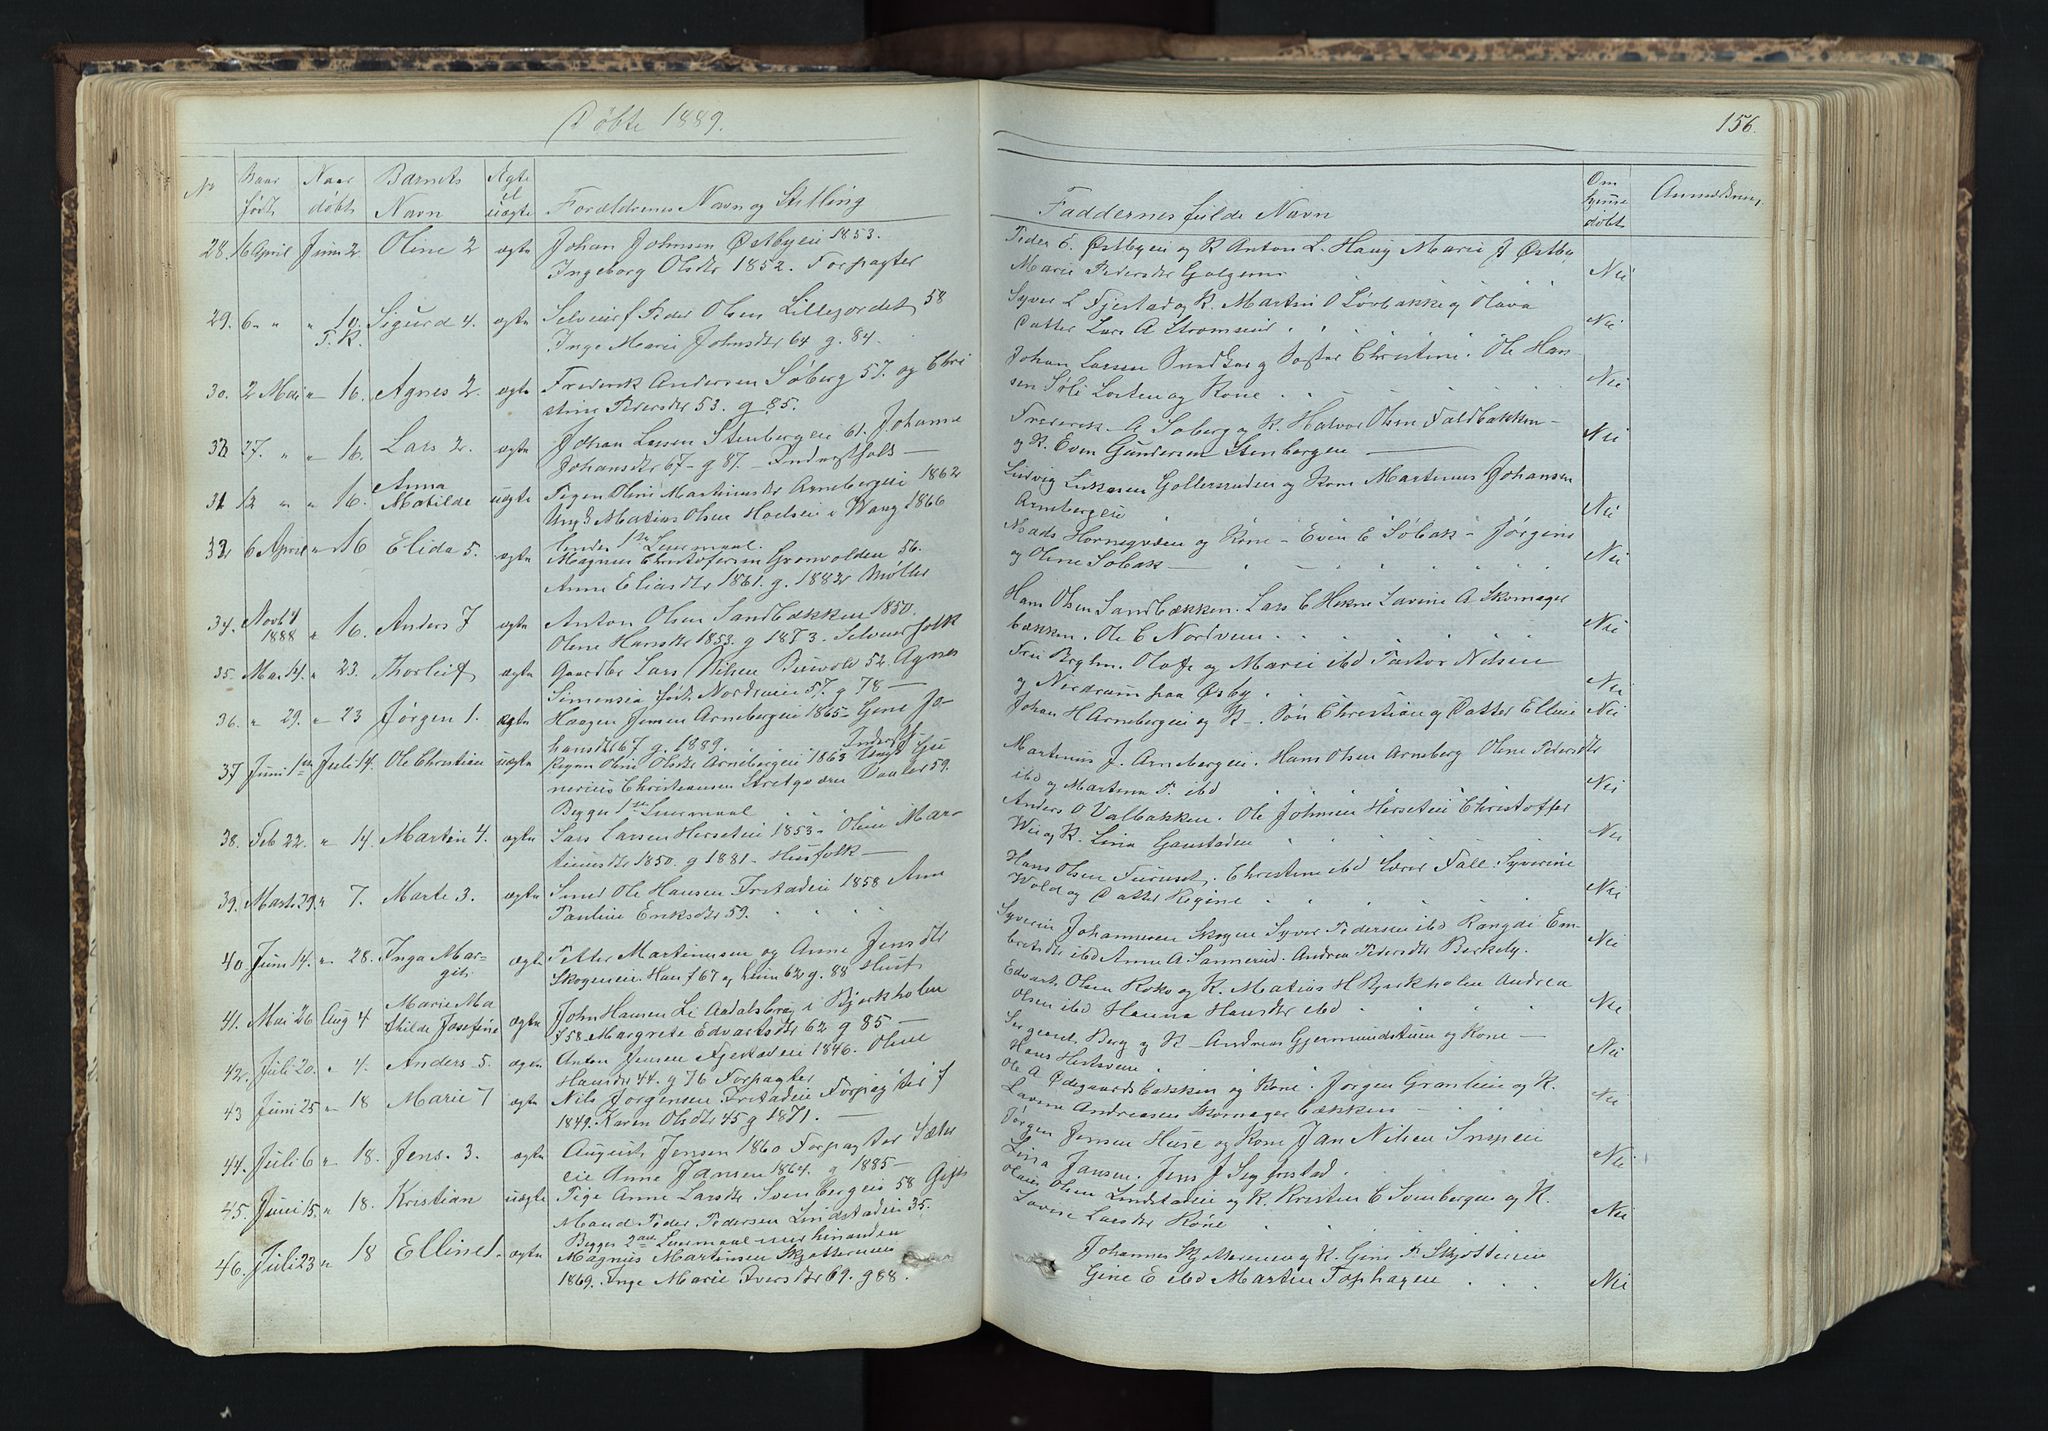 Døbte 1889.
156.
No Naar født Naar døbt Barnets Navn Ægte el uægte Forældrenes Navn og Stilling
Faddernes fulde Navn Om hjemme døbt Anmerkning
28. 16 April Juni 2. Oline 2 ægte Johan Johnsen Østbyeie 1853.
Ingeborg Olsdtr 1852. Forpagter
Peder E. Østbyeie og K Anton L. Haug Marie J Østby
Marie Pedersdtr Nei
29. 6 " " 10 Sigurd 4. ægte Selveier f Peder Olsen Lillejordet 58
F.K. Inge Marie Johnsdtr 64 g. 84.
Syver L Fjestad og K. Martin O Lørbakke og Olava
Datter Lars A Strømseie Nei
30. 2 Mai " 16. Agnes 2. ægte Frederik Andersen Søberg 57. og Chri
stine Pedersdtr 53. g 85.
Johan Larsen og Søster Christine. Ole Han
sen Løiten og Kone Nei
27. " " 16. Lars 2. ægte Johan Larsen Stenbergeie 61. Johanne
Johansdtr 67 - g 87. - Inderstfolk -
Frederik A Søberg og K. Halvor Olsen Faldbakken -
og K. Even Gundersen Stenbergeie Nei
12 " " 16. Anna Matilde uægte Pigen Oline Martinusdtr Arnebergeie 1862
Ungk Matias Olsen Hoelseie i Vang 1866
hendes 1ste Leiermaal.
Ludvig og Kone Martinus Johansen
Arnebergeie Nei
6 April " 16 Elida 5. ægte Magnus Christofersen Grønvolden 56.
Anne Eliasdtr 1861. g. 1882 Møller
Mads Hornsgveen og Kone - Even E Søbak - Jørgine
og Oline Søbak Nei
34. Novb 4 1888 " 16. Anders 7 ægte Anton Olsen Sandbækken 1850.
Olene Hansdtr 1853. g 1873. Selveierfolk
Hans Olsen Sandbækken. Lars C Lavine A Skomager
bækken. Ole C Nordveen Nei
35. Mai 14. " 23. Thorleif ægte Gaardbr Lars Nilsen 52. Agnes
Simensen født Nordrum 57. g 78 -
Oloffe og Marie ibd Pastor Nilsen
og Nordrum paa Østby. Nei
36. " 29. " 23 Jørgen 1. ægte Haagen Jensen Arnebergeie 1865 - Gine Jo-
hansdtr 67 g. 1889. Inderstf
Johan H Arnebergeie og K -. Søn Christian og Datter Elline Nei
37 Juni 1ste Juli 14. Ole Christian uægte Pigen Oline Olsdtr Arnebergeie 1863
Christiansen Vaaler 59.
Begges 1ste Leiermaal
Martinus J. Arnebergeie. Hans Olsen Arneberg Oline Pedersdtr
ibd og Martea P. ibd Nei
38. Feb 22. " 14. Martin 4. ægte Lars Larsen Hersetseie 1853 - Oline Mar-
tinusdtr 1850. g 1881 - Husfolk -
Anders O Valbakken. Ole Johnsen Hersetseie Christoffer
og K. Lina Ganstadeie Nei
39. Marts 29 " 7. Marte 3. ægte Smed Ole Hansen 1858 Ann
Pauline Eriksdtr 59.
Hans Olsen Furuset. Christine ibd Lærer Fall. Syverine
Wold og Datter Regine Nei
40 Juni 14. " 28. Inga Mar-
git ægte Petter Martinusen og Anne Jensdtr
Skogeneie. Han f 67 og hun 62 g. 88 Husf
Syverin Johannesen Skogen Syver Pedersen ibd Rangdi Em
bretsdtr ibd Anne A Sannerud. Andrea Pedersdtr Berkely. Nei
41. Mai 26 Aug 4 Marie Ma
thilde Josefine ægte John Hansen Li Aadalsbrug i Bjerkholen
f 58 - Margrete Edvartsdtr 62 g 85 -
Edvart Olsen Roko og K. Matias H Bjerkholen Andrea
Olsen ibd Hanna Hansdtr ibd Nei
42. Juli 20. " 4. Anders 5. ægte Anton Jensen Fjestadeie 1846. Oline
Hansdtr 44. g 76 Forpagter
Sergeant Berg og K - Andreas Gjermundstuen og Kone -
Hans Nei
43 Juni 25 " 18 Marie 7 ægte Nils Jørgensen Forpagter f
1849. Karen Olsdtr 45 g 1871. -
Ole A Ødegaardsbakken og Kone. Jørgen Granlien og K.
Lavine Andreasen Skomagerbækken - Nei
44. Juli 6 " 18. Jens. 3. ægte August Jensen 1860 Forpagter Sæter
eie Anne Jansen 1864. g 1885 -
Jørgen Jensen Huse og Kone Jan Nilsen
Lina Jansen. Jens J Nei
45. Juni 15. " 18. Kristian uægte Pige Anne Larsdtr Svenbergeie 58 Gift
Mand Peder Pedersen Lindstadeie 35.
Begges 2det Leiermaal med hinanden
Olaus Olsen Lindstadeie og K. Kristen C Svenbergeie og K.
Lovise Larsdtr Kone Nei
46. Juli 23 " 18 Elline 1. ægte Magnus Martinsen Skjøttereneie
1869. Inge Marie Iversdtr 69. g 88.
Johannes Skjøttereneie og K. Gine P Skjøttereneie
Gine E ibd Martin Tophagen Nei